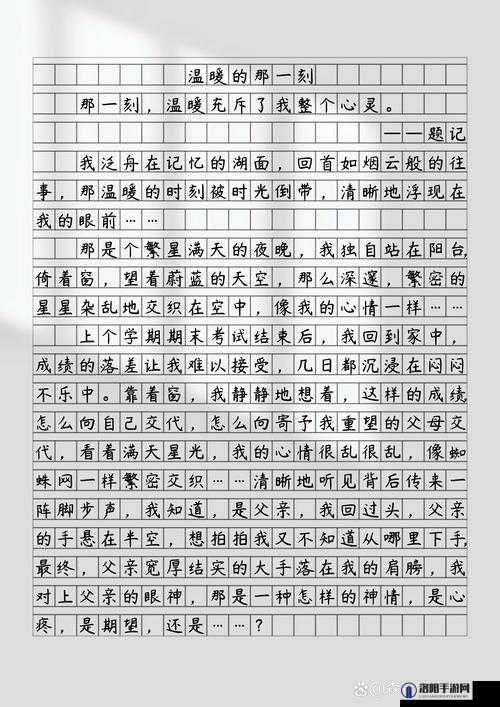 温暖的那一刻
那一刻，温暖充斥了我整个心灵。
——题记
我泛舟在记忆的湖面，回首如烟云般的往
事，那温暖的时刻被时光倒带，清晰地浮现在
我的眼前……
那是个繁星满天的夜晚，我独自站在阳台，
倚着窗，望着蔚蓝的天空，那么深邃，繁密的
星星杂乱地交织在空中，像我的心情一样……
上个学期期末考试结束后，我回到家中，
成绩的落差让我难以接受，几日都沉浸在闷闷
不乐中。靠着窗，我静静地想着，这样的成绩
怎么向自己交代，怎么向寄予我重望的父母交
代，看着满天星光，我的心情很乱很乱，像蜘
蛛网一样繁密交织……清晰地听见背后传来一
阵脚步声，我知道，是父亲，我回过头，父亲
的手悬在半空，想拍拍我又不知道从哪里下手，
最终，父亲宽厚结实的大手落在我的肩膀，我
对上父亲的眼神，那是一种怎样的神情，是心
疼，是期望，还是……？
洛阳手游网